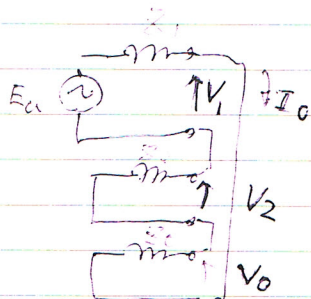 Z₁
Ea
V₁
I₀
V₂
V₀